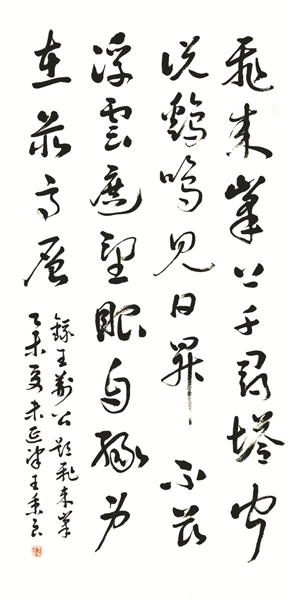 飛來峯上千尋塔聞
說鷄鳴見日昇不畏
浮雲遮望眼自緣身
在最高層
錄王荊公題飛來峯
乙未夏末延津王秉